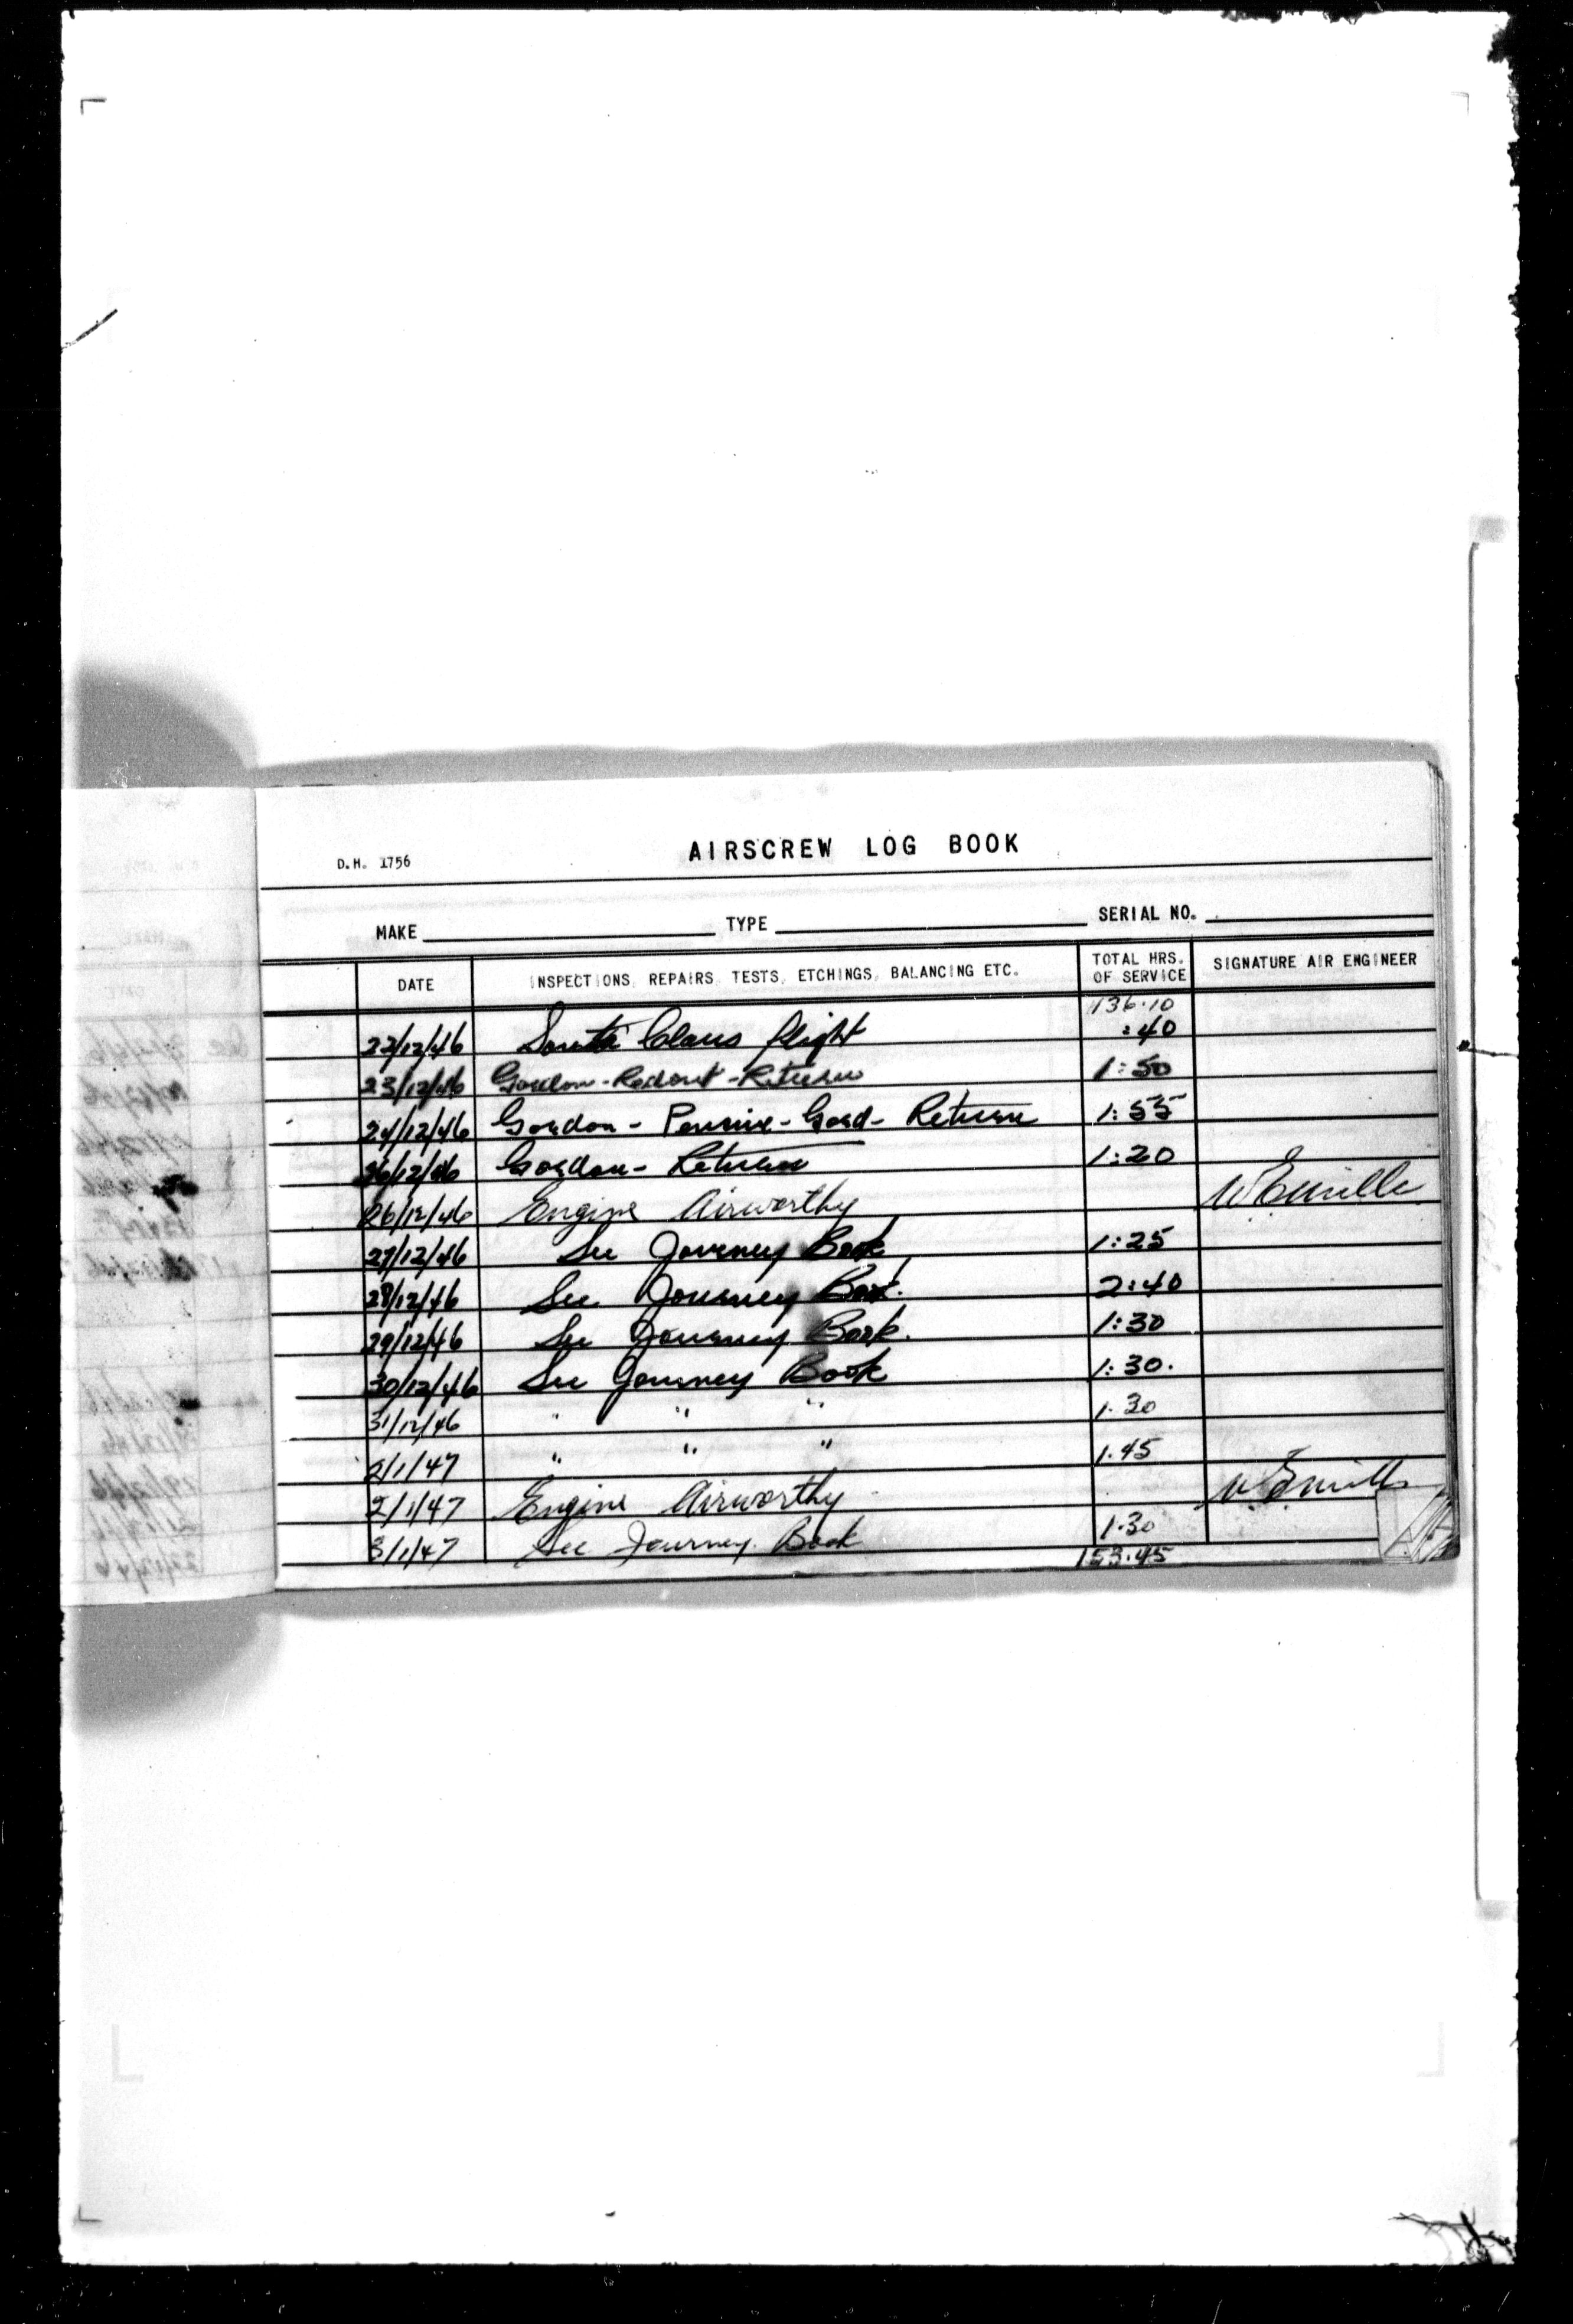 D.H. 1756
AIRSCREW LOG BOOK
MAKE TYPE SERIAL NO.
DATE INSPECTIONS, REPAIRS, TESTS, ETCHINGS, BALANCING ETC. TOTAL HRS. OF SERVICE SIGNATURE AIR ENGINEER
136.10
22/12/46 Santa Claus flight :40
23/12/46 Gordon - - Return 1:50
24/12/46 Gordon - - Gord - Return 1:55
26/12/46 Gordon - Return 1:20
26/12/46 Engine Airworthy
27/12/46 See Journey Book 1:25
28/12/46 See Journey Book. 2:40
29/12/46 See Journey Book. 1:30
30/12/46 See Journey Book 1:30.
31/12/46 " " " 1.30
2/1/47 " " " 1.45
2/1/47 Engine Airworthy
3/1/47 See Journey Book 1.30
153.45